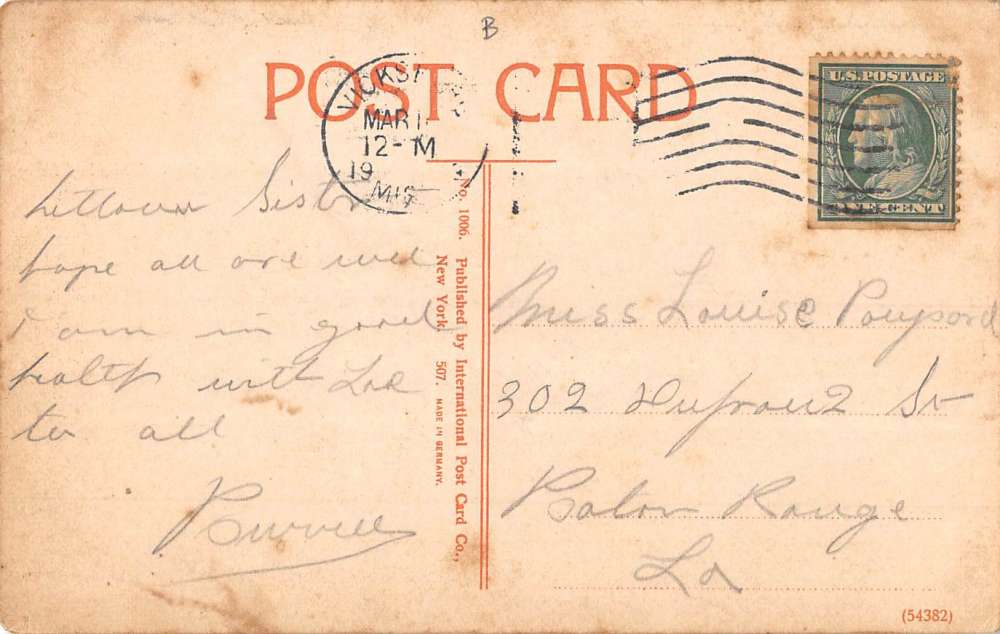 B
POST CARD
VICKSB
MAR 1
12-M
19
MIS
U.S. POSTAGE
ONE CENT
Sister
hope all are well
I am in good
health with Love
to all
Burvell
No. 1006. Published by International Post Card Co.,
New York. 507. MADE IN GERMANY.
Miss Louise
302 St
Baton Rouge
La
(54382)